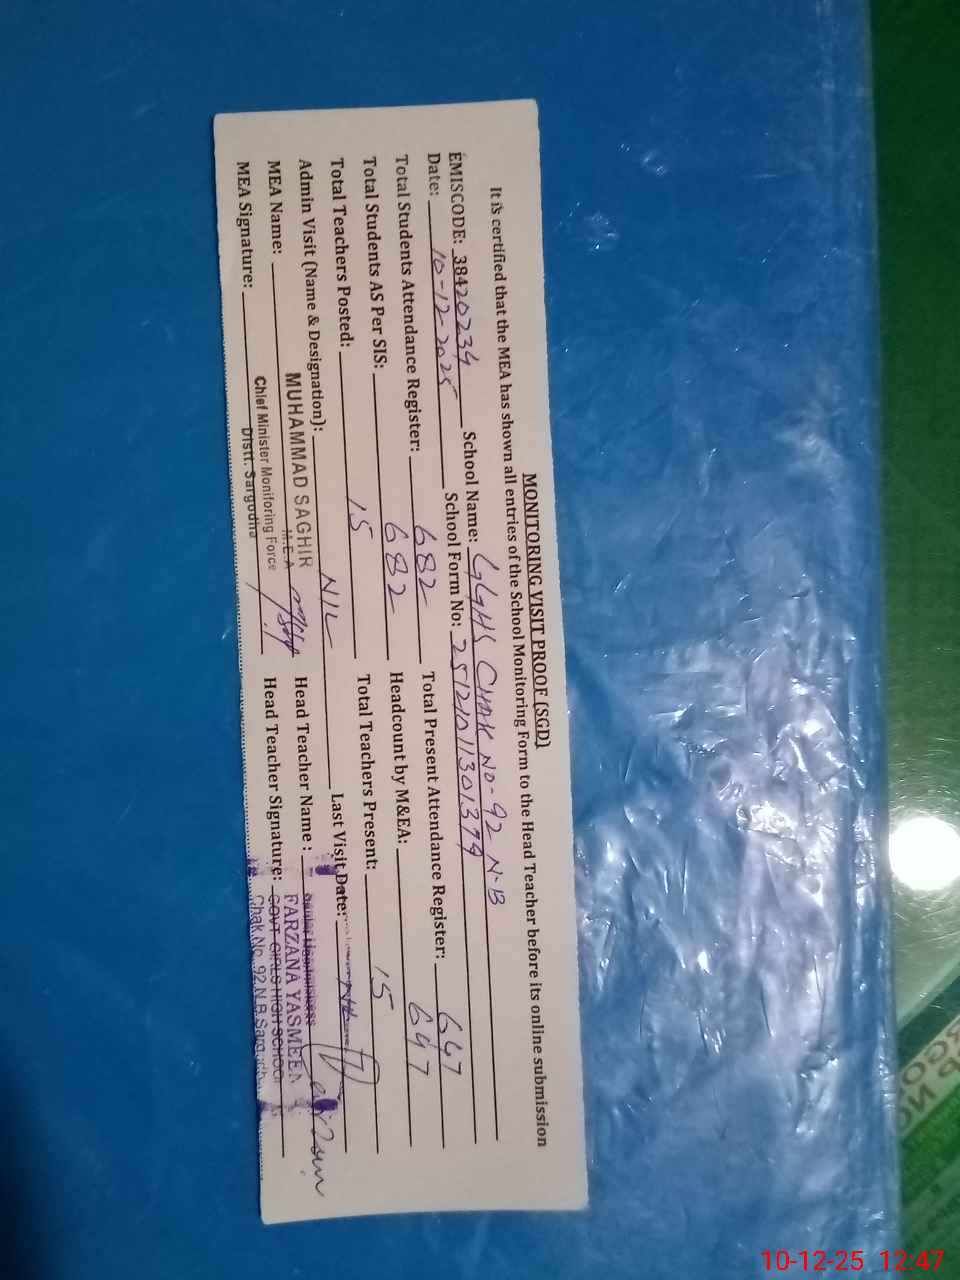 MONITORING VISIT PROOF (SGD)
It is certified that the MEA has shown all entries of the School Monitoring Form to the Head Teacher before its online submission
EMISCODE: 38420234 School Name: GGHS CHAK NO-92 N-B
Date: 10-12-2025 School Form No: 251210113013
Total Students Attendance Register: 682 Total Present Attendance Register: 647
Total Students AS Per SIS: 682 Headcount by M&EA: 647
Total Teachers Posted: 15 Total Teachers Present: 15
Admin Visit (Name & Designation): NIL Last Visit Date:
MEA Name: MUHAMMAD SAGHIR Head Teacher Name :
M.E.A
MEA Signature: Chief Minister Monitoring Force Head Teacher Signature:
Distt. Sargodha
FARZANA YASMEEN
GOVT GIRLS HIGH SCHOOL
Chak No. 92 N.B
10-12-25 12:47